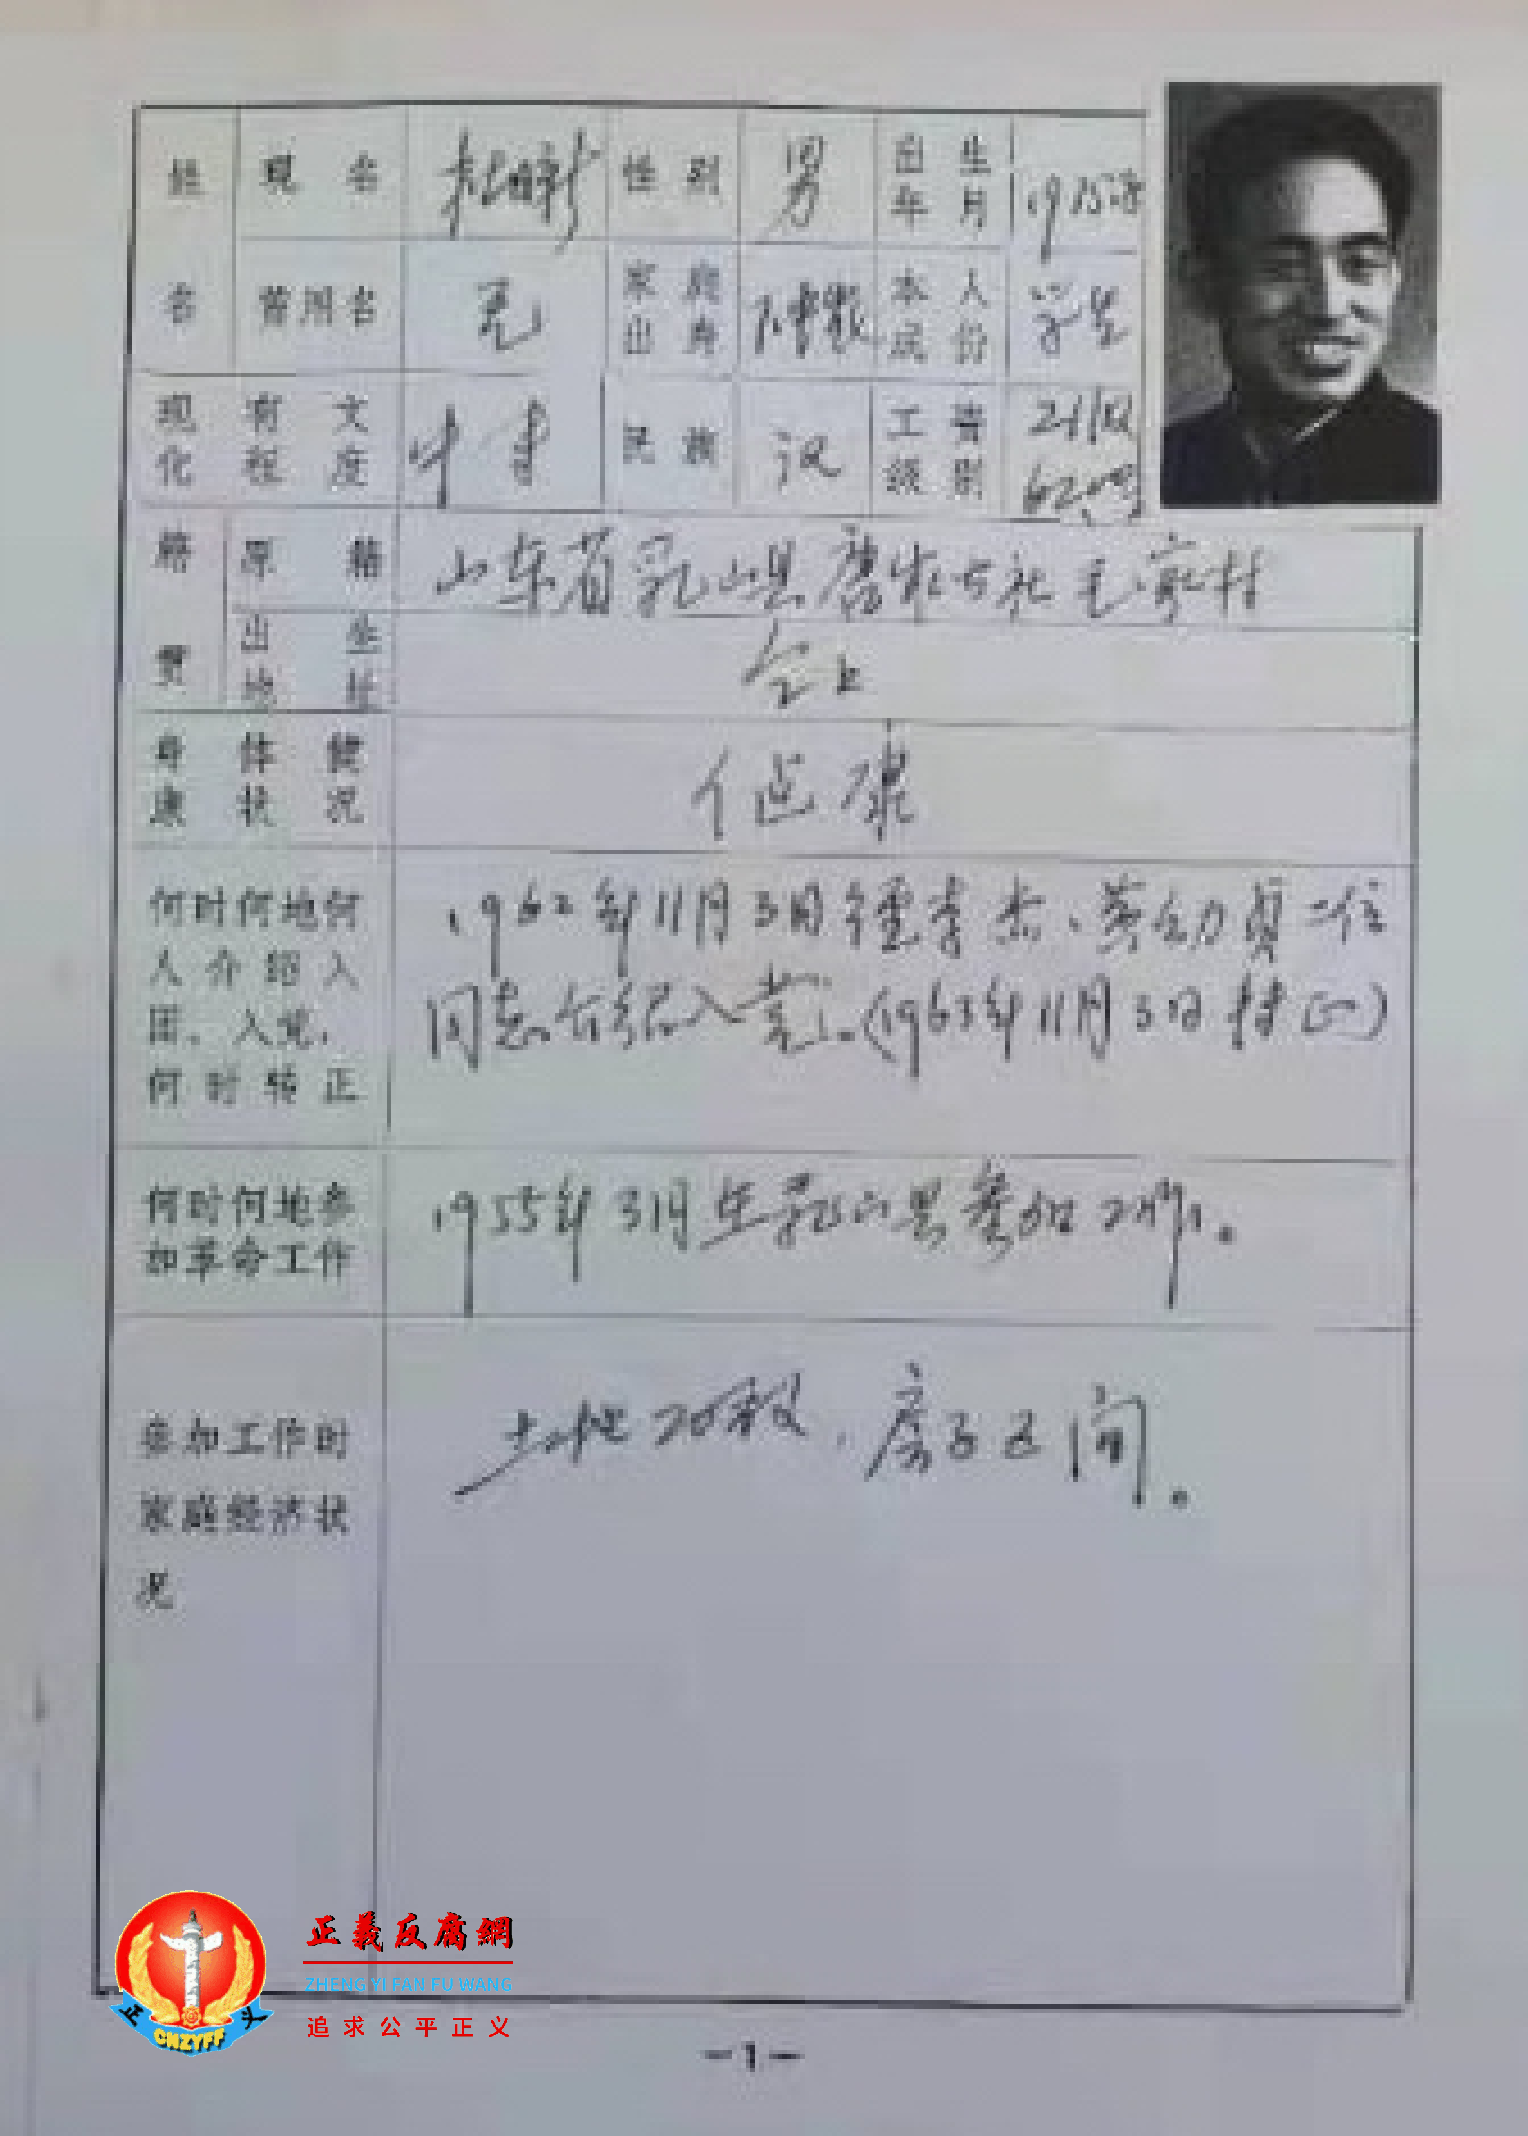 姓 现 名 性 别 男 出 生
年 月 1935.
名 曾用名 无 家 庭
出 身 中农 本 人
成 份 学生
现 有 文
化 程 度 中专 民 族 汉 工 资
级 别 21级
籍 原 籍 山东省乳山县 公社 家村
贯 出 生
地 址 仝上
身 体 健
康 状 况 健康
何时何地何
人介绍入
团、入党,
何时转正
1962年11月3日 二位
同志介绍入党。(1963年11月3日转正)
何时何地参
加革命工作
1955年3月在乳山县参加工作。
参加工作时
家庭经济状
况
土地20亩,房子五间。
正義反腐網
ZHENG YI FAN FU WANG
追求公平正义
正 义
CNZYFF
-1-